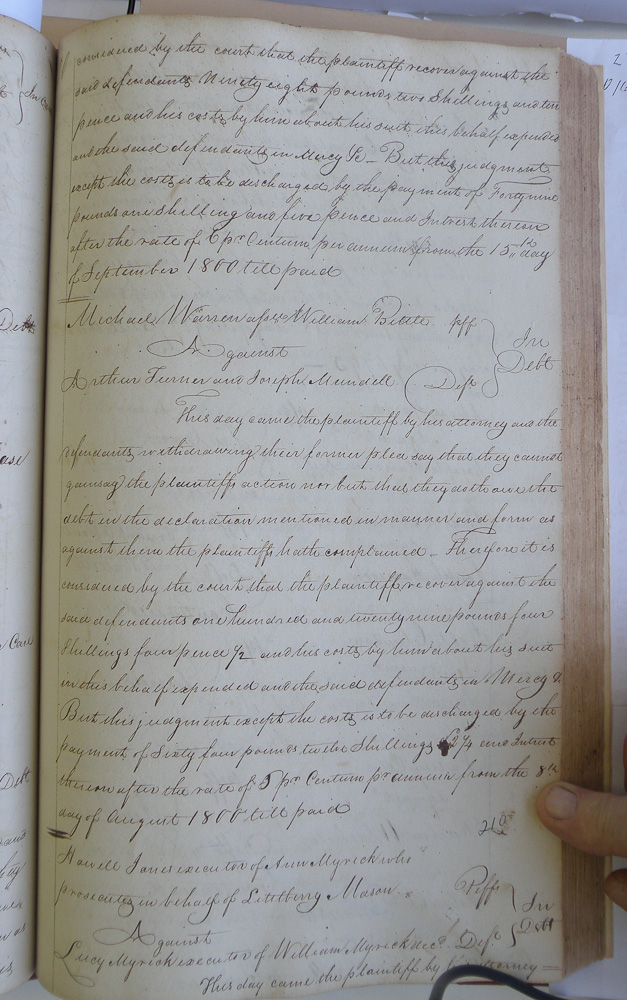 considered by the court that the plaintiff recover against the
said defendants Ninety eight pounds two Shillings and ten
pence and his costs by him about his suit in this behalf expended
and the said defendants in Mercy &c - But this judgment
except the costs is to be discharged by the payment of Forty nine
pounds one shilling and five pence and Interest thereon
after the rate of 6 pr Centum per annum from the 15th day
of September 1800 till paid
Michael Warren assee William Bittle plff
Against
In
Debt
Arthur Turner and Joseph Mundell Defts
This day came the plaintiff by his attorney and the
defendants withdrawing their former plea say that they cannot
gainsay the plaintiffs action nor but that they do the owe the
debt in the declaration mentioned in manner and form as
against them the plaintiffs hath complained - Therefore it is
considered by the court that the plaintiff recover against the
said defendants one hundred and twenty nine pounds four
Shillings four pence 1/2 and his costs by him about his suit
in this behalf expended and the said defendants in Mercy &
But this judgment except the costs is to be discharged by the
payment of Sixty four pounds twelve Shillings & 2 1/4 and Interest
thereon after the rate of 5 pr Centum pr annum from the 8th
day of August 1800 till paid
Howell Jones executor of Ann Myrick who
prosecutes in behalf of Littlberry Mason Plffs
Against
In
Debt
Lucy Myrick executor of William Myrick decd. Deft
This day came the plaintiff by his attorney